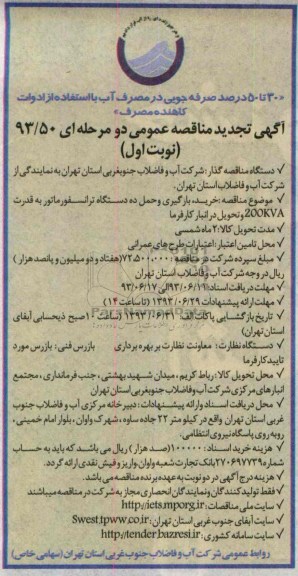 «۳۰ تا ۵۰ درصد صرفه جویی در مصرف آب با استفاده از ادوات
کاهنده مصرف»
آگهی تجدید مناقصه عمومی دو مرحله ای ۹۳/۵۰
(نوبت اول)
✓ دستگاه مناقصه گذار: شرکت آب و فاضلاب جنوبغربی استان تهران به نمایندگی از
شرکت آب و فاضلاب استان تهران.
✓ موضوع مناقصه: خرید، بارگیری و حمل ده دستگاه ترانسفورماتور به قدرت
200KVA و تحویل در انبار کارفرما
✓ مدت تحویل کالا: ۲ ماه شمسی
✓ محل تامین اعتبار: اعتبارات طرح های عمرانی
✓ مبلغ سپرده شرکت در مناقصه: ۷۲،۵۰۰،۰۰۰ (هفتاد و دو میلیون و پانصد هزار)
ریال در وجه شرکت آب و فاضلاب استان تهران
✓ مهلت دریافت اسناد: ۹۳/۰۶/۱۹ الی ۹۳/۰۶/۱۷
✓ مهلت ارائه پیشنهادات ۱۳۹۳/۰۶/۲۹ (تا ساعت ۱۴)
✓ تاریخ بازگشایی پاکات الف ۱۳۹۳/ ساعت صبح ذیحسابی آبفای
استان تهران)
✓ دستگاه نظارت: معاونت نظارت بر بهره برداری بازرس فنی: بازرس مورد
تایید کارفرما
✓ محل تحویل کالا: رباط کریم، میدان شهید بهشتی، جنب فرمانداری، مجتمع
انبارهای مرکزی شرکت آب و فاضلاب جنوبغربی استان تهران
✓ محل دریافت اسناد و ارائه پیشنهادات: دبیرخانه مرکزی آب و فاضلاب جنوب
غربی استان تهران واقع در کیلومتر ۲۲ جاده ساوه، شهرک واوان، بلوار امام خمینی،
روبه روی پاسگاه نیروی انتظامی.
✓ هزینه خرید اسناد: ۱۰۰۰۰۰ (صد هزار) ریال می باشد که باید به حساب
شماره ۲۷۰۶۹۷۷۳۹ بانک تجارت شعبه واوان واریز و فیش نقدی ارائه گردد.
✓ هزینه درج آگهی در دو نوبت به عهده برنده مناقصه می باشد.
✓ فقط تولیدکنندگان و نمایندگان انحصاری مجاز به شرکت در مناقصه میباشند
✓ سایت ملی مناقصات: http://iets.mporg.ir
✓ سایت آبفای جنوب غربی استان تهران: Swest.tpww.co.ir
✓ سایت سامانه کشوری: http://tender.bazresi.ir
روابط عمومی شرکت آب و فاضلاب جنوب غربی استان تهران (سهامی خاص)